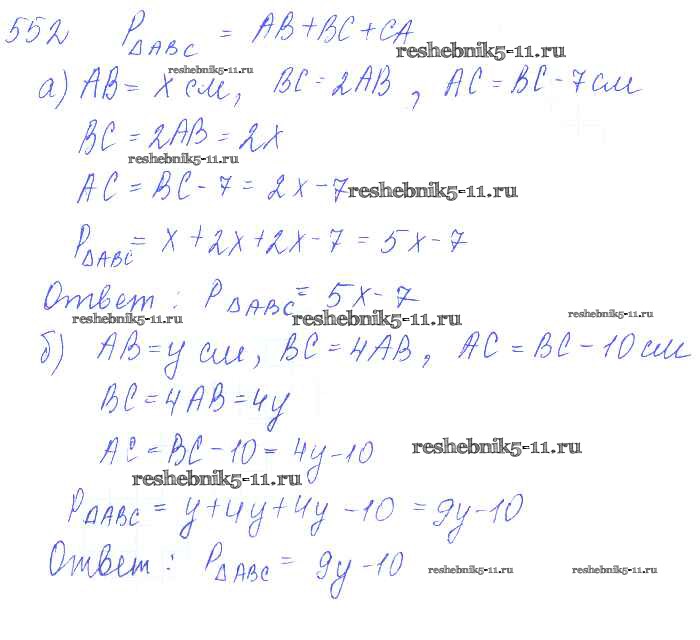 552 P△ABC = AB+BC+CA
reshebnik5-11.ru
reshebnik5-11.ru
а) AB = x см, BC = 2AB, AC = BC - 7 см
BC = 2AB = 2x
reshebnik5-11.ru
AC = BC - 7 = 2x - 7
reshebnik5-11.ru
P△ABC = x + 2x + 2x - 7 = 5x - 7
Ответ: P△ABC = 5x - 7
reshebnik5-11.ru reshebnik5-11.ru reshebnik5-11.ru
б) AB = y см, BC = 4AB, AC = BC - 10 см
BC = 4AB = 4y
AC = BC - 10 = 4y - 10
reshebnik5-11.ru
reshebnik5-11.ru
P△ABC = y + 4y + 4y - 10 = 9y - 10
Ответ: P△ABC = 9y - 10
reshebnik5-11.ru reshebnik5-11.ru